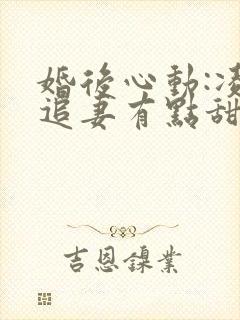 婚後心動:凌
追妻有點甜
吉恩鎳業